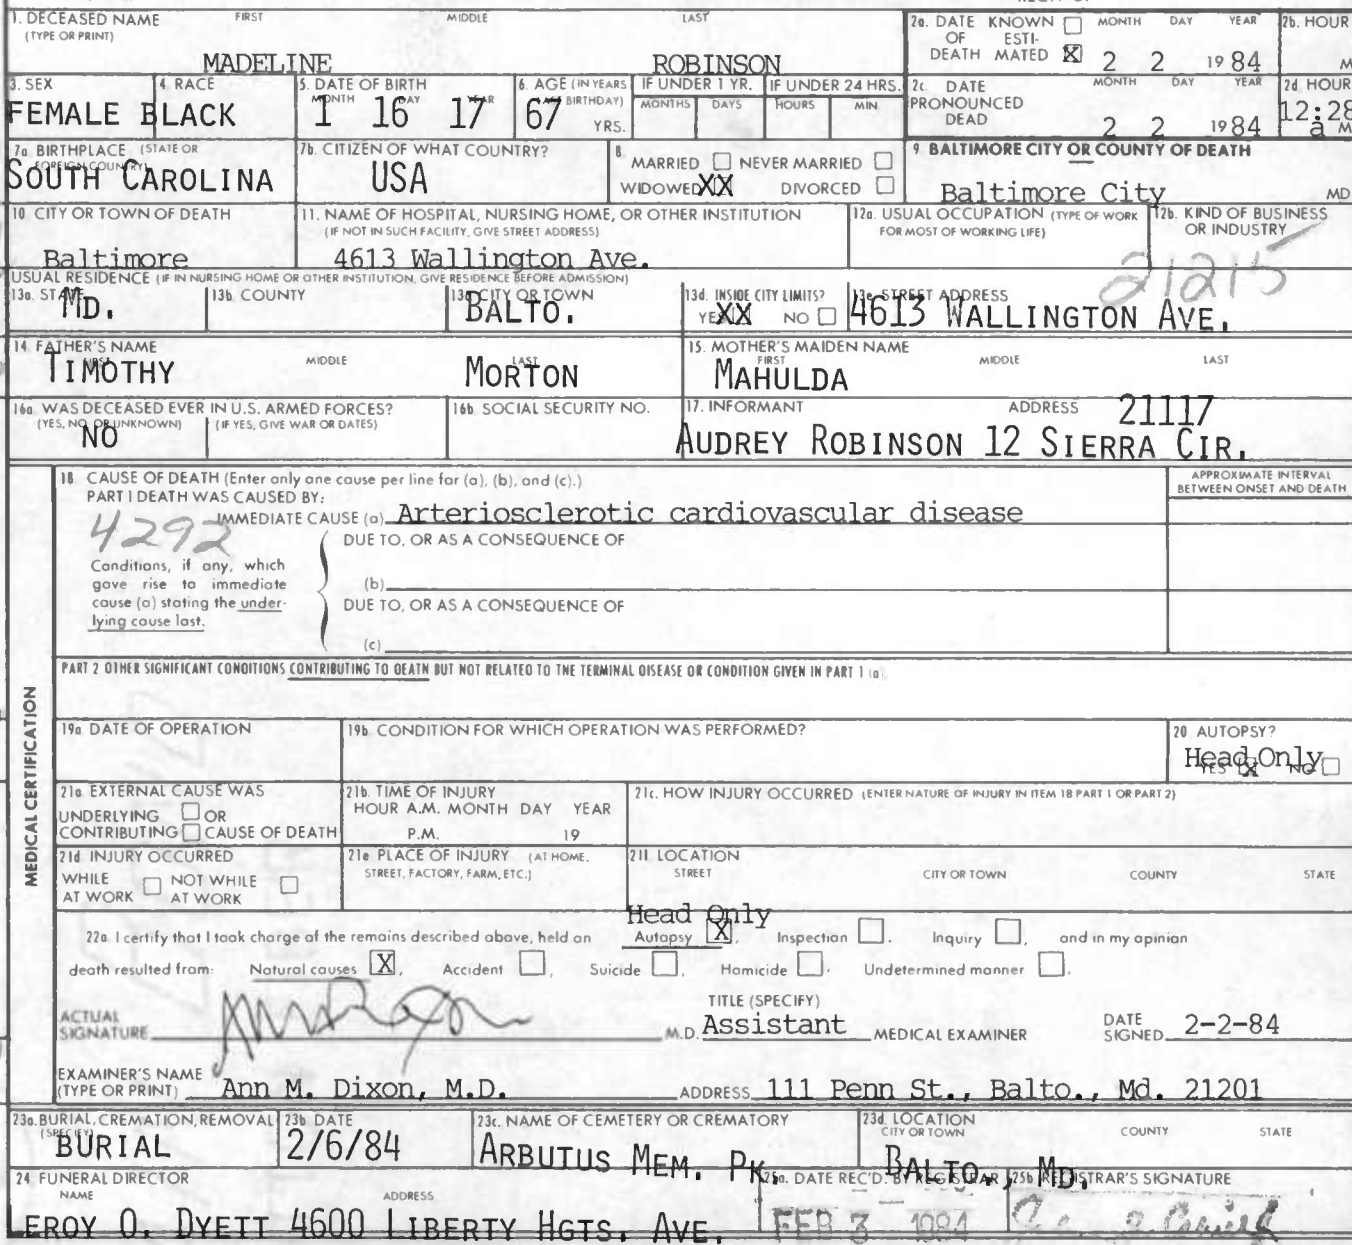 1. DECEASED NAME FIRST MIDDLE LAST
(TYPE OR PRINT)
MADELINE ROBINSON
2a. DATE KNOWN ☐ MONTH DAY YEAR
OF ESTI-
DEATH MATED ☒ 2 2 1984
2b. HOUR
M
3. SEX
FEMALE
4. RACE
BLACK
5. DATE OF BIRTH
MONTH DAY YEAR
1 16 17
6. AGE (IN YEARS
BIRTHDAY)
67 YRS.
IF UNDER 1 YR.
MONTHS DAYS
IF UNDER 24 HRS.
HOURS MIN
2c. DATE MONTH DAY YEAR
PRONOUNCED
DEAD 2 2 1984
2d HOUR
12:28
a M
7a BIRTHPLACE (STATE OR
FOREIGN COUNTRY)
SOUTH CAROLINA
7b. CITIZEN OF WHAT COUNTRY?
USA
8.
MARRIED ☐ NEVER MARRIED ☐
WIDOWED XX DIVORCED ☐
9 BALTIMORE CITY OR COUNTY OF DEATH
Baltimore City MD
10 CITY OR TOWN OF DEATH
Baltimore
11. NAME OF HOSPITAL, NURSING HOME, OR OTHER INSTITUTION
(IF NOT IN SUCH FACILITY, GIVE STREET ADDRESS)
4613 Wallington Ave.
12a. USUAL OCCUPATION (TYPE OF WORK
FOR MOST OF WORKING LIFE)
12b. KIND OF BUSINESS
OR INDUSTRY
21215
USUAL RESIDENCE (IF IN NURSING HOME OR OTHER INSTITUTION, GIVE RESIDENCE BEFORE ADMISSION)
13a. STATE
MD.
13b COUNTY
13c CITY OR TOWN
BALTO.
13d. INSIDE CITY LIMITS?
YES XX NO ☐
13e STREET ADDRESS
4613 WALLINGTON AVE.
14 FATHER'S NAME
FIRST MIDDLE LAST
TIMOTHY MORTON
15. MOTHER'S MAIDEN NAME
FIRST MIDDLE LAST
MAHULDA
16a WAS DECEASED EVER IN U.S. ARMED FORCES?
(YES, NO, OR UNKNOWN) (IF YES, GIVE WAR OR DATES)
NO
16b SOCIAL SECURITY NO.
17. INFORMANT ADDRESS 21117
AUDREY ROBINSON 12 SIERRA CIR.
MEDICAL CERTIFICATION
18 CAUSE OF DEATH (Enter only one cause per line for (a), (b), and (c).)
APPROXIMATE INTERVAL
BETWEEN ONSET AND DEATH
PART I DEATH WAS CAUSED BY:
IMMEDIATE CAUSE (a) Arteriosclerotic cardiovascular disease
4292
DUE TO, OR AS A CONSEQUENCE OF
Conditions, if any, which
gave rise to immediate
cause (a) stating the under-
lying cause last.
(b)
DUE TO, OR AS A CONSEQUENCE OF
(c)
PART 2 OTHER SIGNIFICANT CONDITIONS CONTRIBUTING TO DEATH BUT NOT RELATED TO THE TERMINAL DISEASE OR CONDITION GIVEN IN PART 1 (a)
19a DATE OF OPERATION
19b CONDITION FOR WHICH OPERATION WAS PERFORMED?
20 AUTOPSY?
Head Only
YES ☒ NO ☐
21a EXTERNAL CAUSE WAS
UNDERLYING ☐ OR
CONTRIBUTING ☐ CAUSE OF DEATH
21b. TIME OF INJURY
HOUR A.M. MONTH DAY YEAR
P.M. 19
21c. HOW INJURY OCCURRED (ENTER NATURE OF INJURY IN ITEM 18 PART 1 OR PART 2)
21d INJURY OCCURRED
WHILE ☐ NOT WHILE ☐
AT WORK AT WORK
21e PLACE OF INJURY (AT HOME,
STREET, FACTORY, FARM, ETC.)
21f LOCATION
STREET CITY OR TOWN COUNTY STATE
Head Only
22a I certify that I took charge of the remains described above, held an Autopsy ☒, Inspection ☐, Inquiry ☐, and in my opinion
death resulted from: Natural causes ☒, Accident ☐, Suicide ☐, Homicide ☐, Undetermined manner ☐.
ACTUAL
SIGNATURE
TITLE (SPECIFY)
M.D. Assistant MEDICAL EXAMINER
DATE
SIGNED 2-2-84
EXAMINER'S NAME
(TYPE OR PRINT) Ann M. Dixon, M.D. ADDRESS 111 Penn St., Balto., Md. 21201
23a. BURIAL, CREMATION, REMOVAL
(SPECIFY)
BURIAL
23b DATE
2/6/84
23c. NAME OF CEMETERY OR CREMATORY
ARBUTUS MEM. PK.
23d. LOCATION
CITY OR TOWN COUNTY STATE
BALTO., MD.
24 FUNERAL DIRECTOR
NAME ADDRESS
LEROY O. DYETT 4600 LIBERTY HGTS. AVE.
25a. DATE REC'D. BY REGISTRAR
FEB 3 1984
25b REGISTRAR'S SIGNATURE